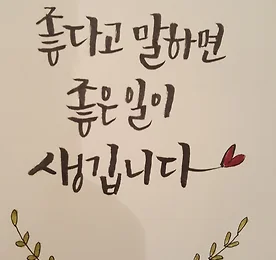 좋다고 말하면
좋은 일이
생깁니다